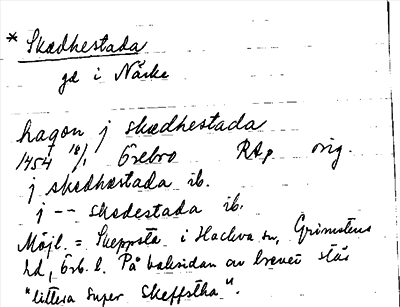 * Skædhestada
gd i Närke
haqon j skædhestada
1454 18/1 Örebro RAp orig.
j skædhæstada ib.
j -- skædestada ib.
Möjl. = Skeppsta i Hackva sn, Grimstens
hd, Örb. l. På baksidan av brevet står
"littera super Skeffstha".